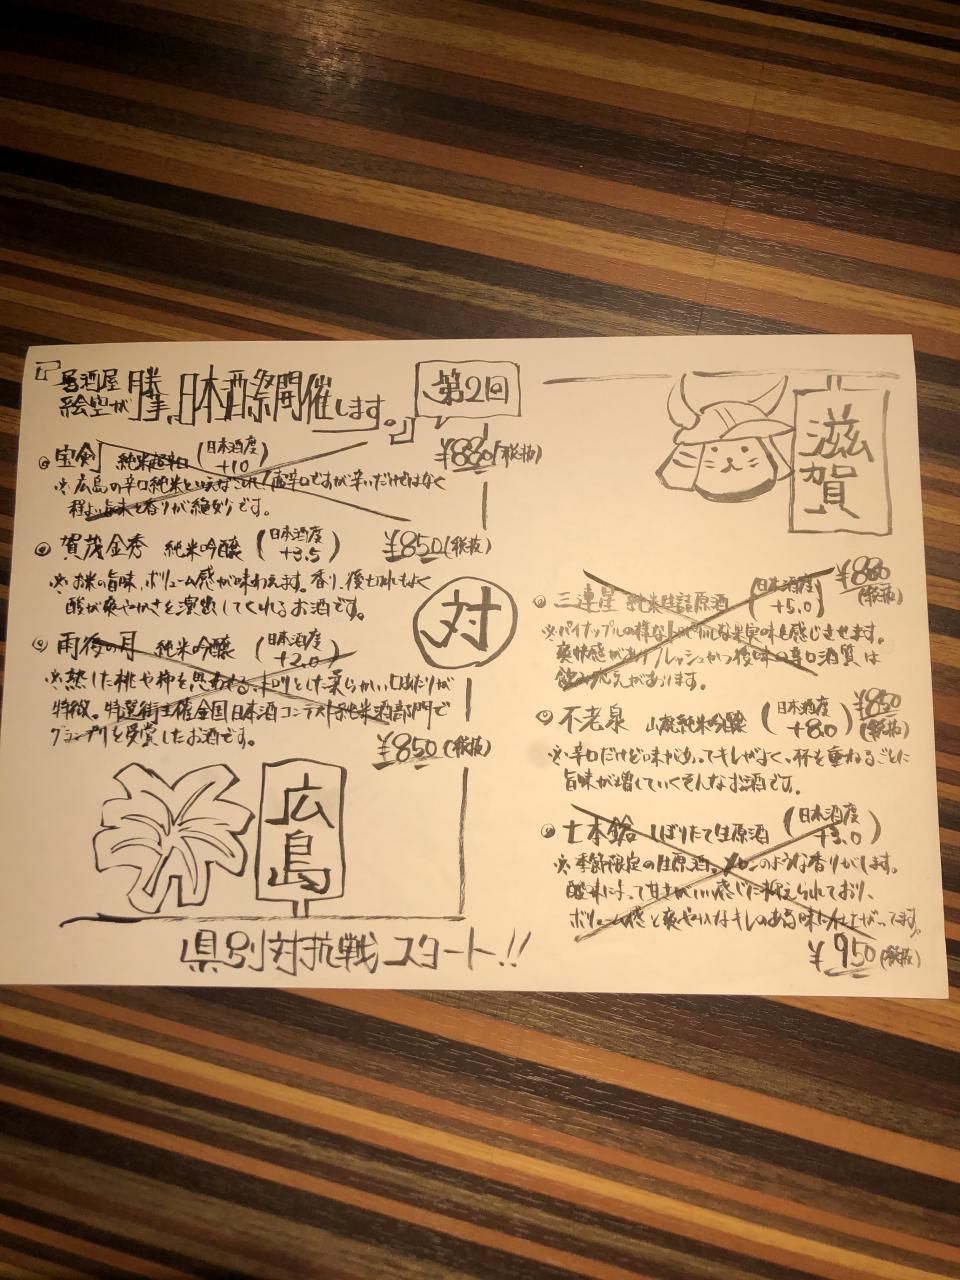 『居酒屋
絵空が
勝手に日本酒祭開催します。』
第2回
宝剣 純米超辛口 (日本酒度 +10) ¥880(税抜)
※広島の辛口純米といえばこれ!超辛口ですが辛いだけではなく
程よい旨味と香りが絶妙です。
賀茂金秀 純米吟醸 (日本酒度 +3.5) ¥850(税抜)
※お米の旨味、ボリューム感が味わえます。香り、後切れもよく
酸が爽やかさを演出してくれるお酒です。
雨後の月 純米吟醸 (日本酒度 +2.0)
※熟した桃や柿を思わせる、しっとりとした柔らかい口あたりが
特徴。特選街主催全国日本酒コンテスト純米酒部門で
グランプリを受賞したお酒です。
¥850(税抜)
広島
対
滋賀
三連星 純米 原酒 (日本酒度 +5.0) ¥880(税抜)
※パイナップルの様なトロピカルな果実味も感じさせます。
爽快感がありフレッシュかつ後味の辛口酒質は
飲みごたえがあります。
不老泉 山廃純米吟醸 (日本酒度 +8.0) ¥850(税抜)
※辛口だけど味があってキレがよく、杯を重ねるごとに
旨味が増していくそんなお酒です。
七本鎗 しぼりたて生原酒 (日本酒度 +3.0)
※季節限定の生原酒。メロンのような香りがします。
酸味によって甘さがいい感じに抑えられており、
ボリューム感と爽やかなキレのある味に仕上がってます。
¥950(税抜)
県別対抗戦スタート!!